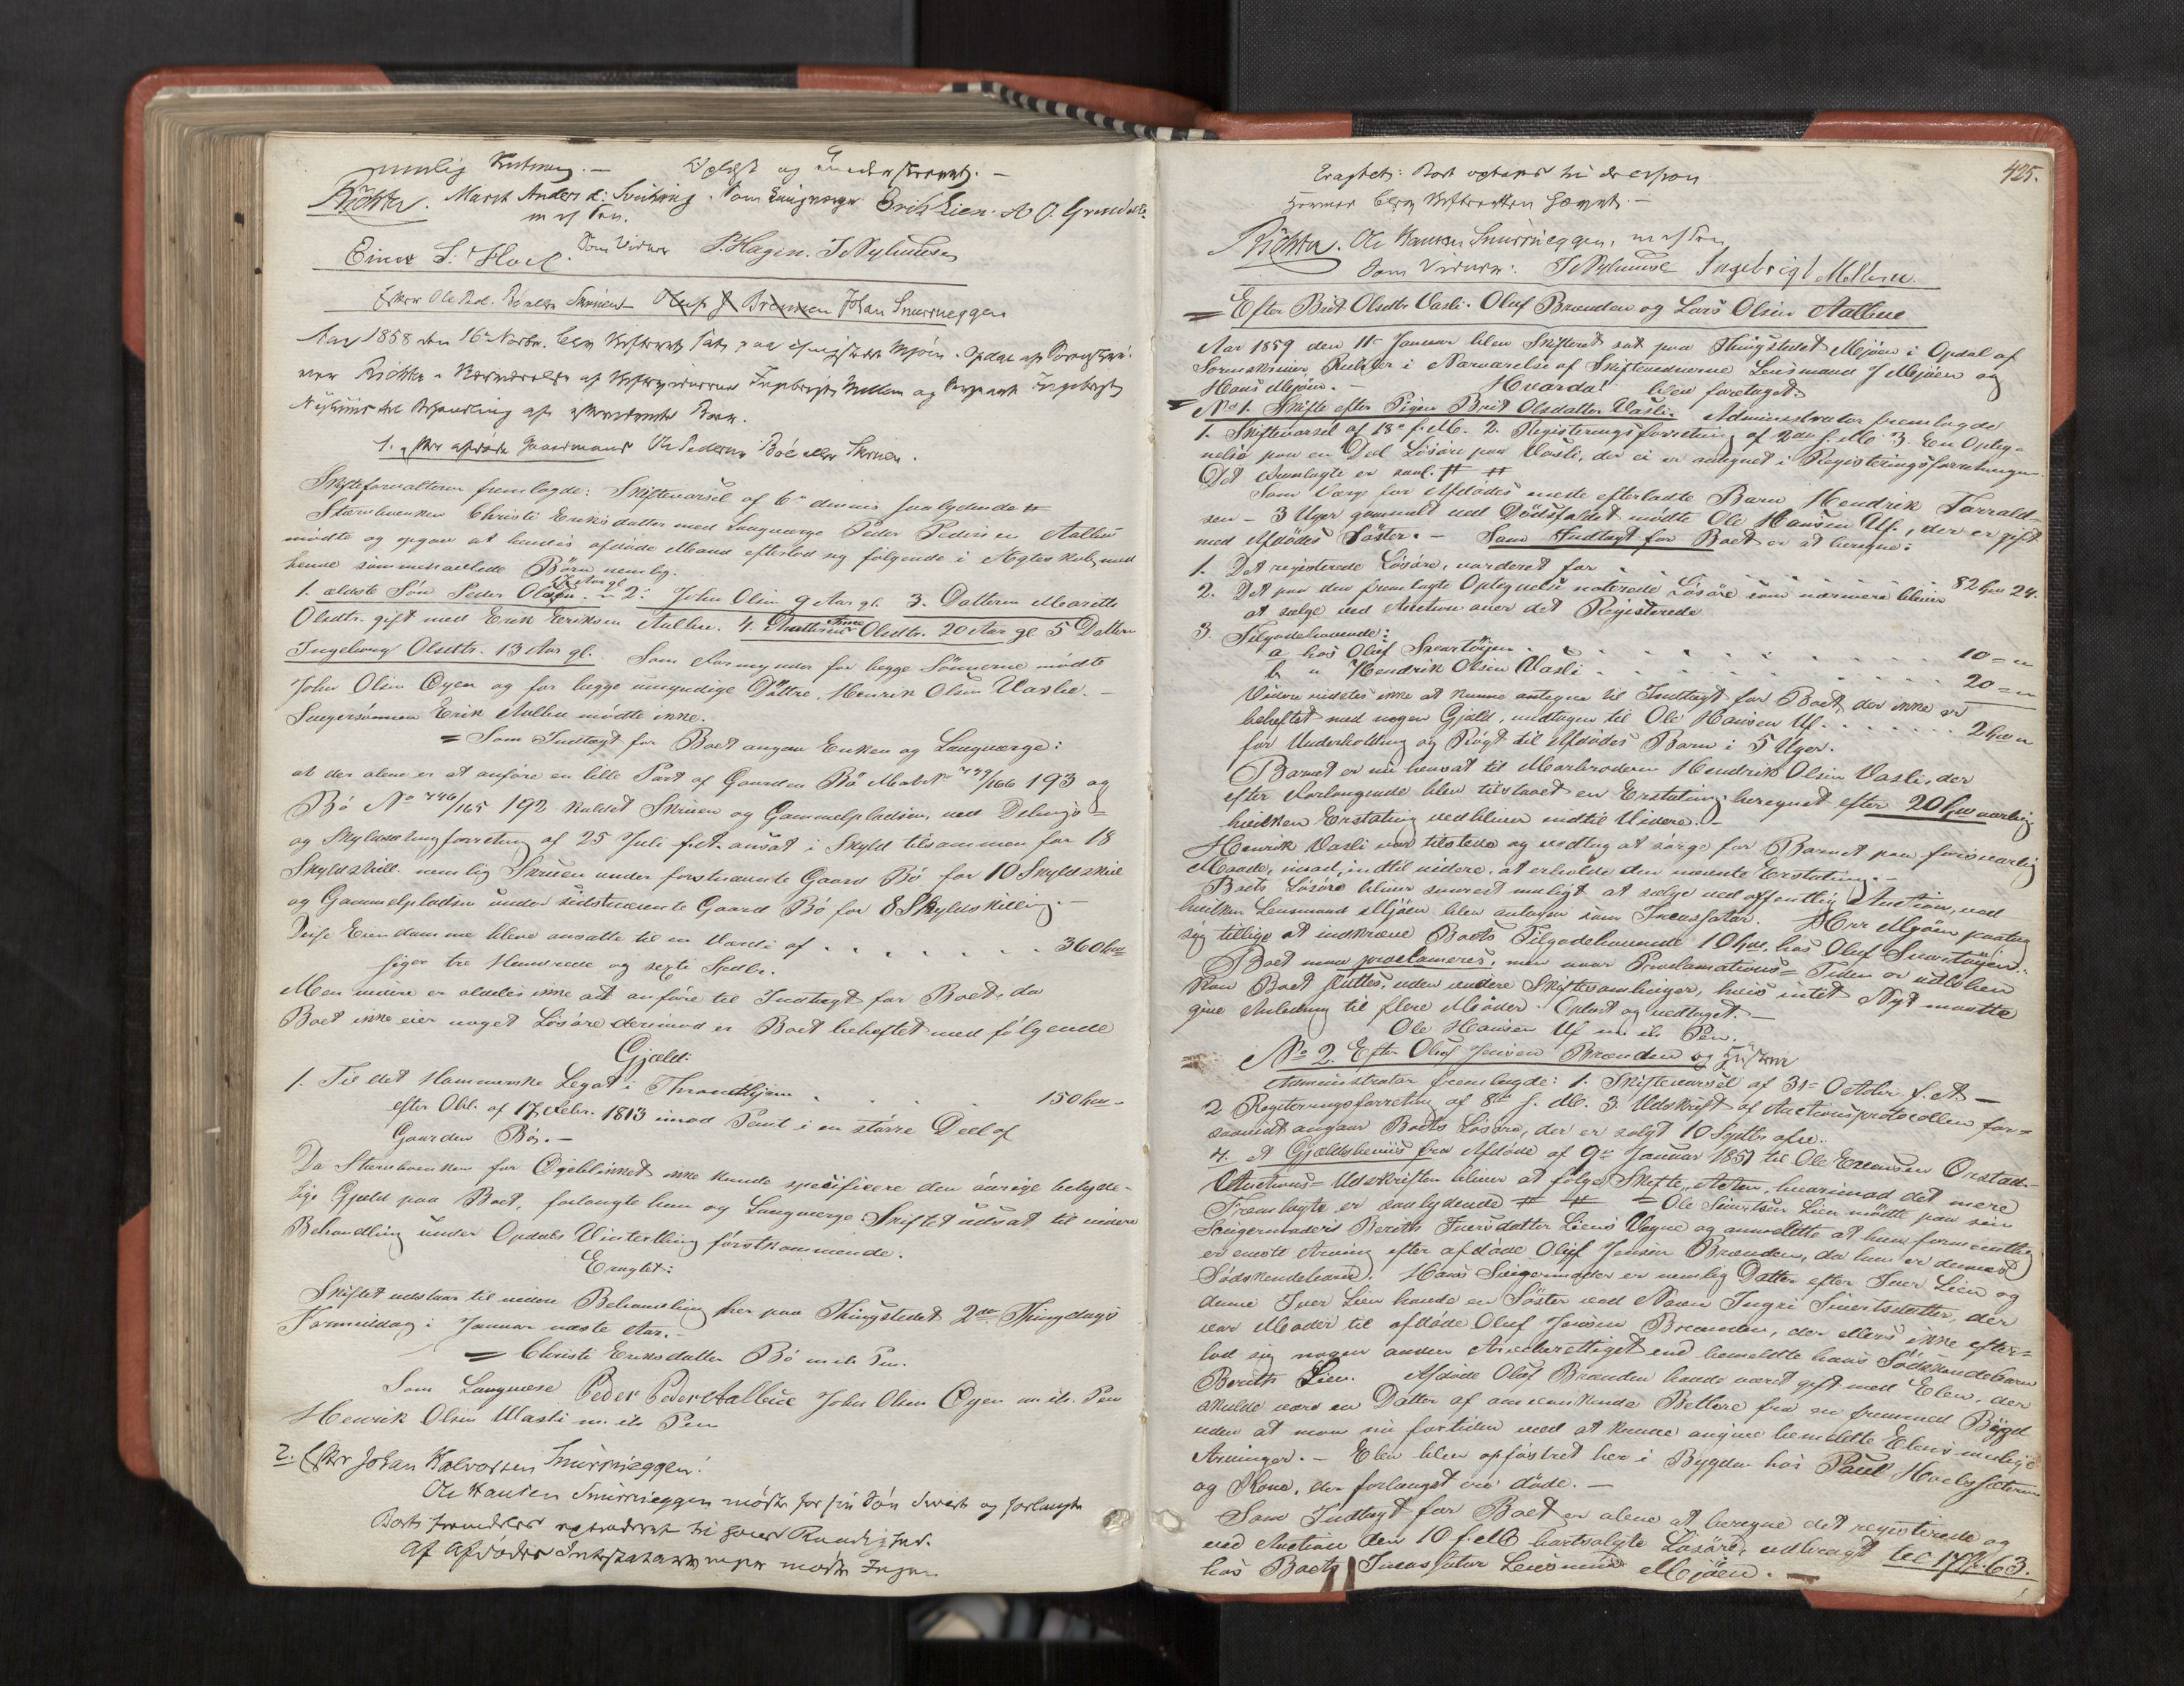 Oplæst og underskrevet. –
Richter. Marit Andersd: som Laugværge Erik Lien. A O. Grendal
m i h Pen.
Einer S. Hoel. Som Vidner P. Hagen. I. Nyhuus
Efter Ole Ped. Bö eller Skruen – Oluf J Brenden Johan Smörreggen
Aar 1858 den 16de Novbr. blev Skifteret sat paa Thingstedet Mjöen i Opdal af Sorenskri-
ver Richter i Nærværelse af Skiftevidnerne Ingebrigt Mellem og Ingebrigt
Nyhuus til Behandling af Boer.
1. Efter afdöde Gaardmand Ole Pedersen Bö eller Skruen.
Skifteforvalteren fremlagde: Skiftevarsel af 6te dennes saalydende #
Stervboenken Christi Eriksdatter med Laugværge Peder Pedersen Aalbu
mödte og opgav at hendes afdöde Mand efterlod sig fölgende i Ægteskab med
hende sammenavlede Börn nemlig.
1. ældste Sön Peder Olsen 17 Aar gl. 2: John Olsen 9 Aar gl. 3. Datteren Marith
Olsdtr. gift med Erik Eriksen Aalbu. 4. Datteren Olsdtr. 20 Aar gl. 5 Datteren
Ingeborg Olsdtr. 13 Aar gl. Som Formynder for begge Sönnerne mödte
John Olsen Öyen og for begge umyndige Döttre, Henrik Olsen Vaslie. –
Svigersönnen Erik Aalbu mödte ikke.
= Som Indtægt for Boet angav Enken og Laugværge:
at der alene er at anföre en lille Part af Gaarden Bö Matr No 747/166 193 og
Bö No 746/165 192 kaldet Skruen og Gammelpladsen, ved Delings-
og Skyldsætningsforretning af 25 Juli f. A. ansat i Skyld tilsammen for 18
Skyldskill. nemlig Skruen under förstnævnte Gaard Bö for 10 Skyldskill
og Gammelpladsen under sidstnævnte Gaard Bö for 8 Skyldskilling. –
Disse Eiendomme bleve ansatte til en Værdi af . . . . . . . 360 Spd
siger tre Hundrede og sexti Spdlr.
Men videre er aldeles ikke at anföre til Indtægt for Boet, da
Boet ikke eier noget Lösöre derimod er Boet beheftet med fölgende
Gjæld:
1. Til det Hammerske Legat i Throndhjem . . . . 150 Spd –
efter Obl. af 17 Febr. 1813 imod Pant i en större Deel af
Gaarden Bö. –
Da Stervboenken for Öieblikket ikke kunde specificere den övrige betyde-
lige Gjæld paa Boet, forlangte hun og Laugværge Skiftet udsat til videre
Behandling under Opdals Vinterthing förstkommende.
Eragtet:
Skiftet udstaar til videre Behandling her paa Thingstedet 2den Thingdags
Formiddag i Januar næste Aar. –
= Christi Eriksdatter Bö m ih Pen.
Som Laugværge Peder Peders Aalbue John Olsen Öyen m. ih. Pen
Henrik Olsen Vasli m. ih Pen
2. Efter Johan Halvorsen Smörreggen:
Ole Hansen Smörreggen mödte for sin Sön Sivert og forlangte
Boets extraderet til
Af Afdödes mödte Ingen.
425.
Eragtet: Boet
Richter. Ole Hansen Smörreggen, m ih Pen
Som Vidner: I. Nyhuus Ingebrigt Mellem.
= Efter Brit Olsdtr. Vasli. Oluf Brænden og Lars Olsen Aalbue
Aar 1859 den 11te Januar blev Skifteret sat paa Thingstedet Mjöen i Opdal af
Sorenskriver Richter i Nærværelse af Skiftevidnerne Lensmand J Mjöen og
Hans Mjöen. – Hvorda! blev foretaget:
= No 1. Skifte efter Pigen Brit Olsdatter Vasli. Administrator fremlagde
1. Skiftevarsel af 18de f. M. 2. Registeringsforretning af 2den f. M. 3. En Opteg-
nelse paa en Del Lösöre paa Vasli, der ei er antegnet i Registeringsforretningen
Det Fremlagte er saal. # #
Som Værge for Afdödes eneste efterladte Barn Hendrik Tarrald-
sen – 3 Uger gammelt ved Dödsfaldet mödte Ole Hansen Uf., der er gift
med Afdödes Söster. – Som Indtægt for Boet er at beregne:
1. Det registerede Lösöre, vurderet for . . . . . . . 82 Spd 24.
2. Det paa den fremlagte Optegnelse noterede Lösöre som nærmere bliver
at sælge ved Auction over det Registerede
3. Tilgodehavende:
a hos Oluf Snartöyen . . . . . . . . . . 10 = "
b " Hendrik Olsen Vasli . . . . . . . . . . 20 = "
Videre vidstes ikke at kunne antegnes til Indtægt for Boet, der ikke er
beheftet med nogen Gjæld, undtagen til Ole Hansen Uf . . . . . . 2 Spd "
for Underholdning og Rögt til Afdödes Barn i 5 Uger.
Barnet er nu hensat til Morbroderen Hendrik Olsen Vasli, der
efter Forlangende blev tilstaaet en Erstatning beregnet efter 20 Spd aarlig
hvilken Erstatning vedbliver indtil Videre. –
Henrik Vasli var tilstede og vedtog at sörge for Barnet paa forsvarlig
Maade, imod, indtil videre, at erholde den nævnte Erstatning. –
Boets Lösöre bliver snarest muligt at sælge ved offentlig Auction, ved
hvilken Lensmand Mjöen blev antagen som Incassator. Herr Mjöen paatog
sig tillige at indkræve Boets Tilgodehavende 10 Spd. hos Oluf Snartöyen. –
Boet maa proclameres, men naar Proclamations= Tiden er udloben
kan Boet sluttes, uden videre Skiftesamlinger, hvis intet Nyt maatte
give Anledning til flere Möder. Oplæst og vedtaget. –
Ole Hansen Uf m. ih Pen.
= No 2. Efter Oluf Jensen Brænden og Hustru
Administrator fremlagde: 1. Skiftevarsel af 31te October f. A –
2 Registeringsforretning af 8de f. M. 3. Udskrift af Auctionsprotocollen for=
saavidt angaaer Boets Lösöre, der er solgt 10 Septbr
4. et Gjældsbeviis fra Afdöde af 9de Januar 1851 til Ole Orstad –
Auctions= Udskriften bliver at fölge Skifte=Acten, hvorimod det mere
Fremlagte er saalydende # # = Ole Sivertsen Lien mödte paa sin
Svigermoders Berith Iversdatter Liens Vegne og anmeldte at hun formentlig
er eneste Arving efter afdöde Oluf Jensen Brænden, da hun er dennes
Södskendebarn. Hans Svigermoder er nemlig Datter efter Iver Lien og
denne Iver Lien havde en Söster ved Navn Ingri Sivertsdatter, der
var Moder til afdöde Oluf Jensen Brænden, der ellers ikke efter=
lod sig nogen anden Arveberettiget end bemeldte hans Södskendebarn
Berith Lien. Afdöde Oluf Brænden havde været gift med Elen, der
skulde være en Datter af omvankende Betlere fra en fremmed Bygd
uden at man nu fortiden ved at kunne angive bemeldte Elens mulige
Arvinger. – Elen blev opföstret her i Bygden hos Paul Hoelssæteren
og Kone, der forlængst ere döde. –
Som Indtægt for Boet er alene at beregne det registerede og
ved Auction den 10 f. M. bortsolgte Lösöre, udbragt til 17 Spd. 63.
hos Boets Incassator Lensmand Mjöen. –